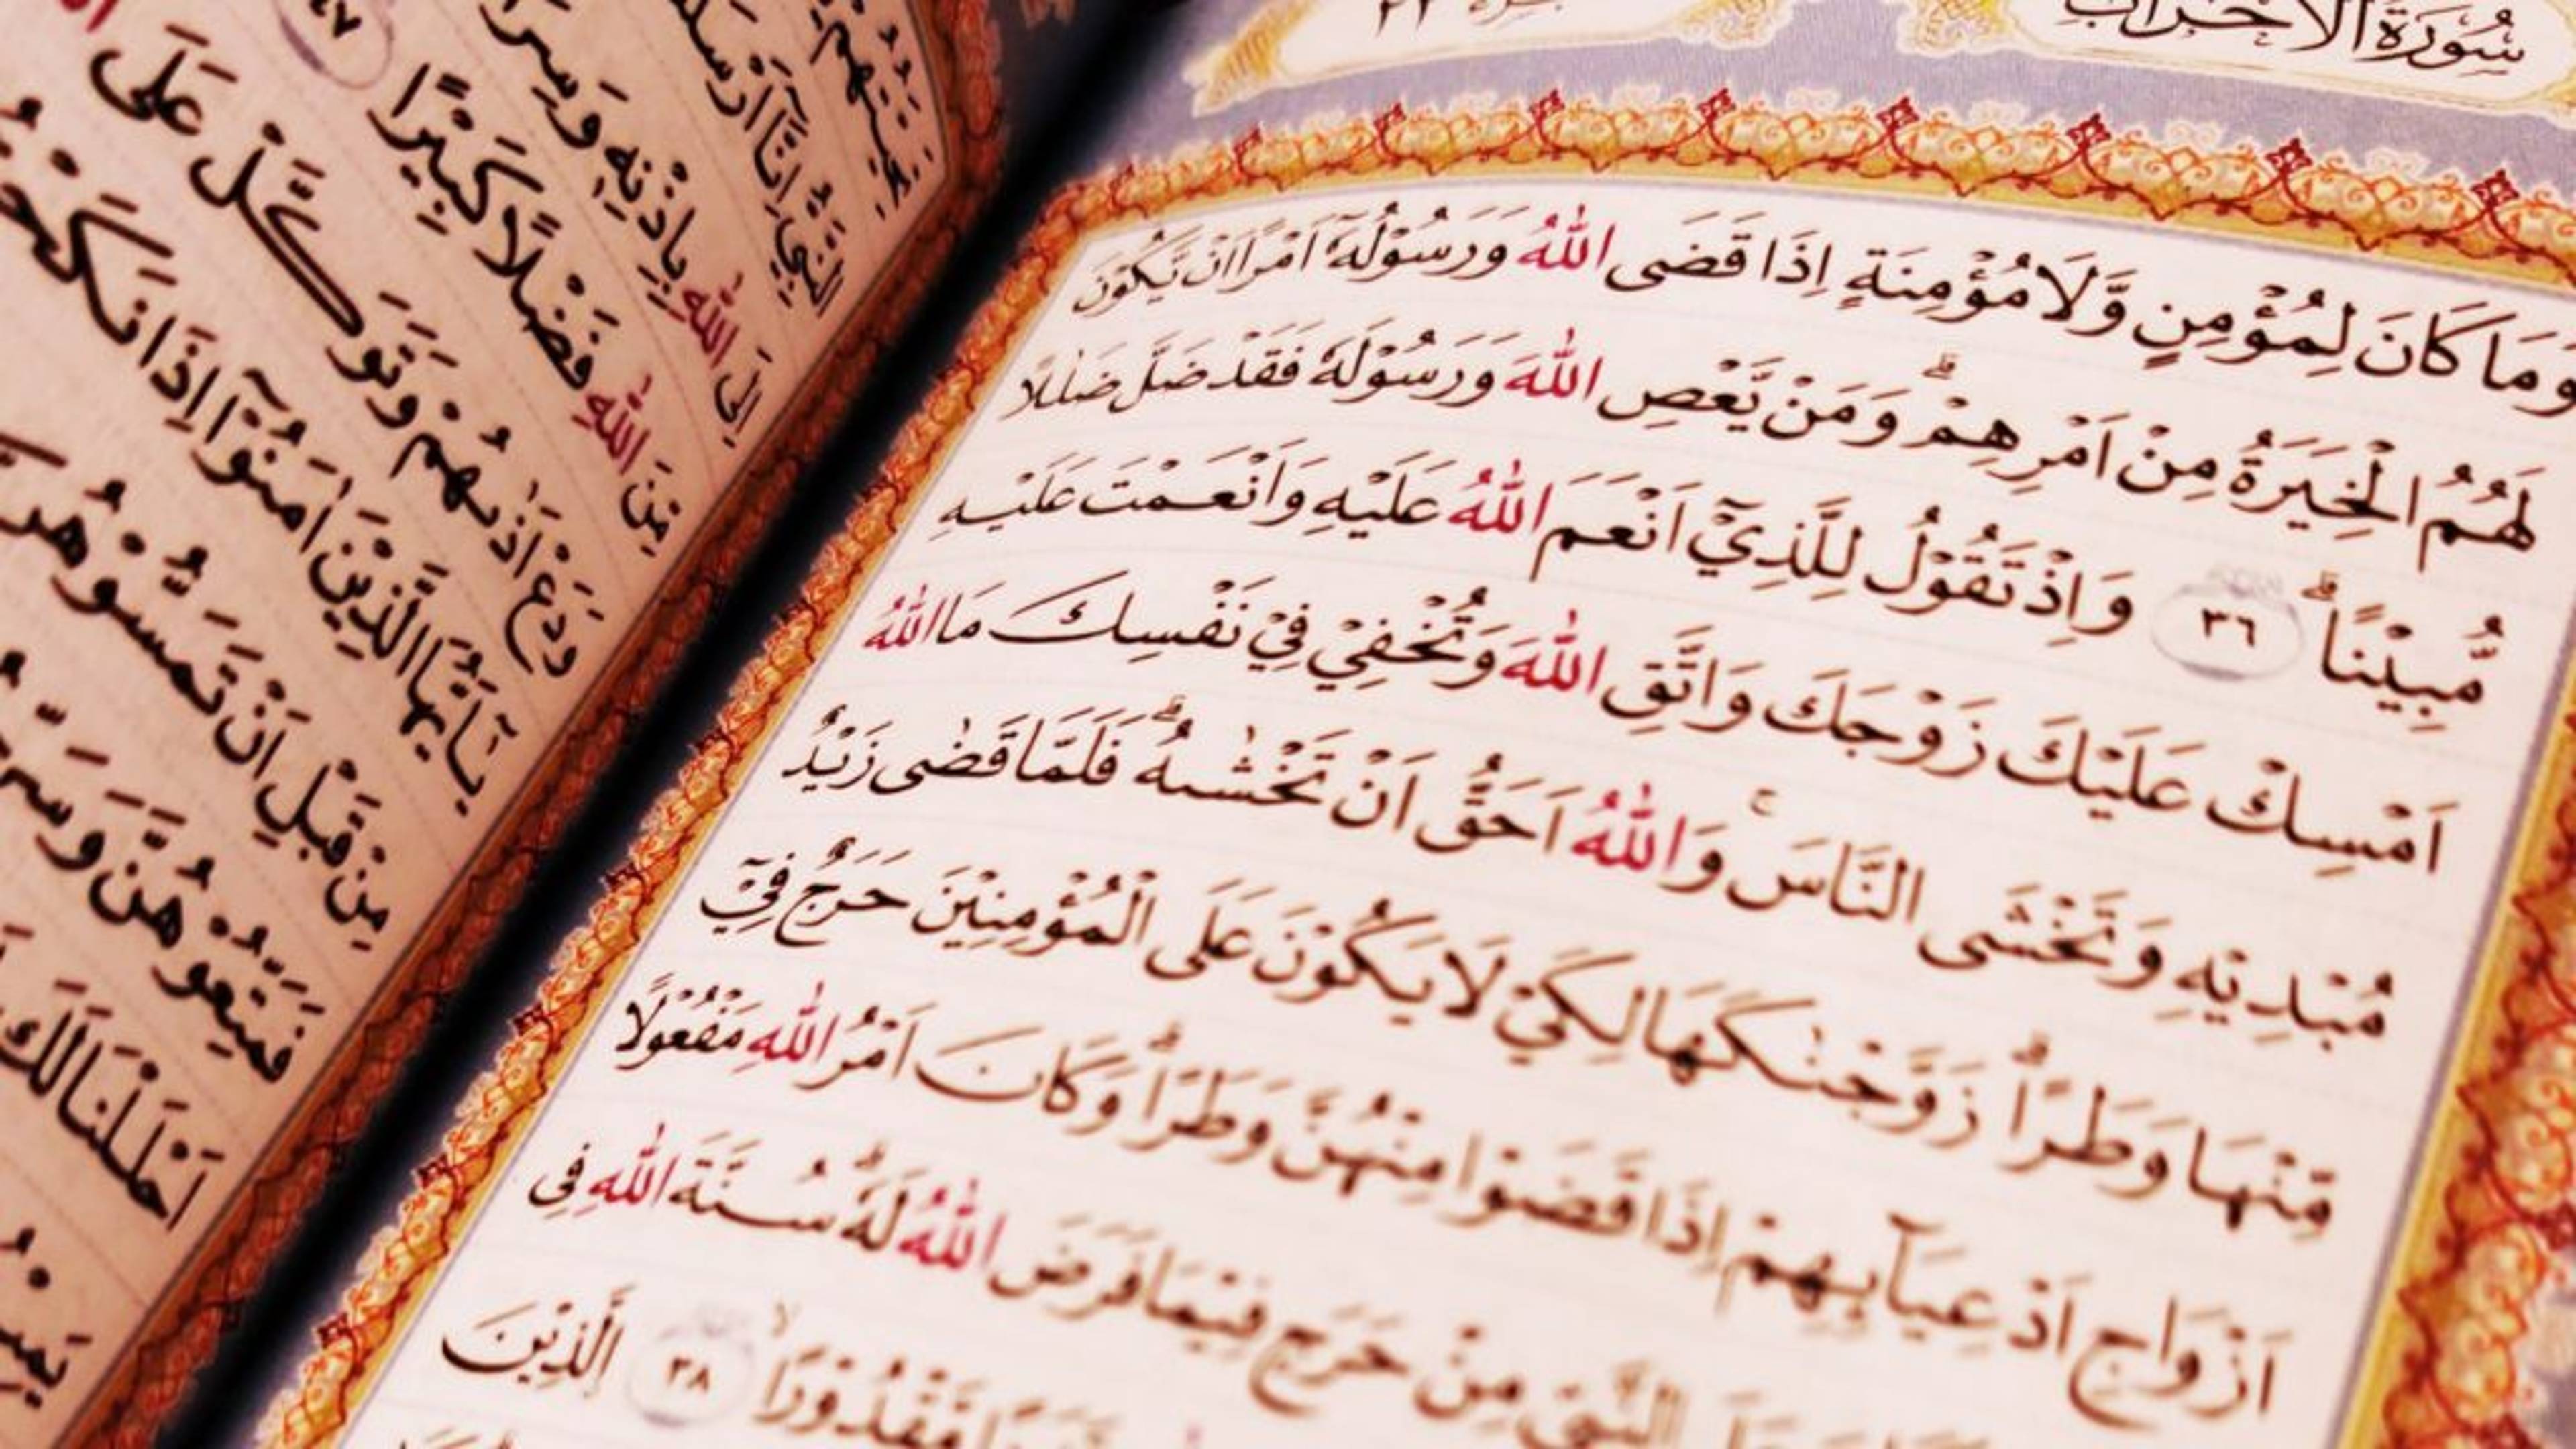 سُورَةُ الْاَحْزَابِ
وَمَا كَانَ لِمُؤْمِنٍ وَّلَا مُؤْمِنَةٍ اِذَا قَضَى اللّٰهُ وَرَسُوْلُهٗٓ اَمْرًا اَنْ يَّكُوْنَ
لَهُمُ الْخِيَرَةُ مِنْ اَمْرِهِمْۗ وَمَنْ يَّعْصِ اللّٰهَ وَرَسُوْلَهٗ فَقَدْ ضَلَّ ضَلٰلًا
مُّبِيْنًاۗ ٣٦ وَاِذْ تَقُوْلُ لِلَّذِيْٓ اَنْعَمَ اللّٰهُ عَلَيْهِ وَاَنْعَمْتَ عَلَيْهِ
اَمْسِكْ عَلَيْكَ زَوْجَكَ وَاتَّقِ اللّٰهَ وَتُخْفِيْ فِيْ نَفْسِكَ مَا اللّٰهُ
مُبْدِيْهِ وَتَخْشَى النَّاسَۚ وَاللّٰهُ اَحَقُّ اَنْ تَخْشٰىهُۗ فَلَمَّا قَضٰى زَيْدٌ
مِّنْهَا وَطَرًاۗ زَوَّجْنٰكَهَا لِكَيْ لَا يَكُوْنَ عَلَى الْمُؤْمِنِيْنَ حَرَجٌ فِيْٓ
اَزْوَاجِ اَدْعِيَاۤىِٕهِمْ اِذَا قَضَوْا مِنْهُنَّ وَطَرًاۗ وَكَانَ اَمْرُ اللّٰهِ مَفْعُوْلًا
النَّبِيِّ مِنْ حَرَجٍ فِيْمَا فَرَضَ اللّٰهُ لَهٗۗ سُنَّةَ اللّٰهِ فِى
مَّقْدُوْرًاۙ ٣٨ ۨالَّذِيْنَ
اِنَّآ اَرْسَلْنٰكَ
اِلَى اللّٰهِ بِاِذْنِهٖ وَسِرَاجًا
مِّنَ اللّٰهِ فَضْلًا كَبِيْرًا ٤٧
وَدَعْ اَذٰىهُمْ وَتَوَكَّلْ عَلَى
يٰٓاَيُّهَا الَّذِيْنَ اٰمَنُوْٓا اِذَا نَكَحْتُمُ
مِنْ قَبْلِ اَنْ تَمَسُّوْهُنَّ
فَمَتِّعُوْهُنَّ وَسَرِّحُوْهُنَّ
اَحْلَلْنَا لَكَ